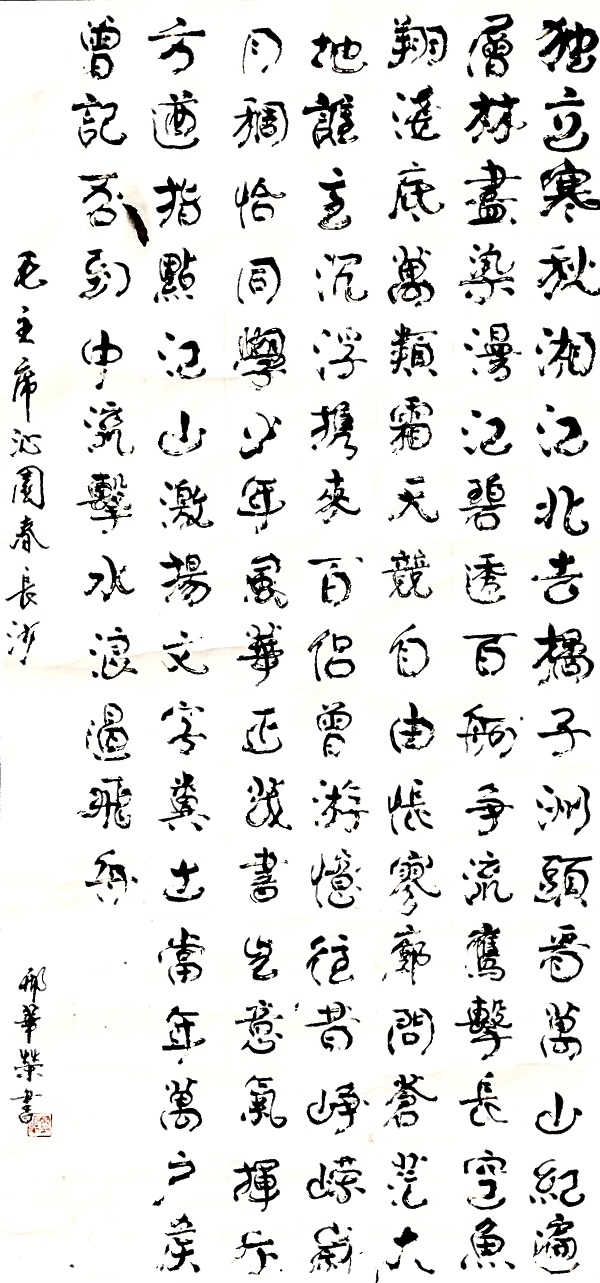 独立寒秋湘江北去橘子洲頭看萬山紅遍
層林盡染漫江碧透百舸争流鷹擊長空魚
翔淺底萬類霜天競自由悵寥廓問蒼茫大
地誰主沉浮携來百侣曾游憶往昔崢嶸歲
月稠恰同學少年風華正茂書生意氣揮斥
方遒指點江山激揚文字糞土當年萬户侯
曾記否到中流擊水浪遏飛舟
毛主席沁園春長沙
華榮書